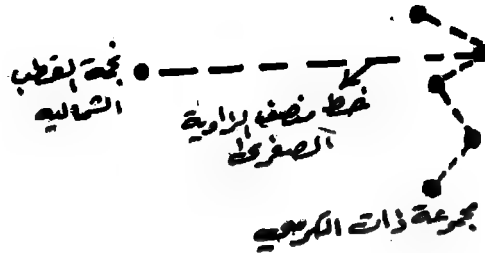 نجمة القطب
الشماليه
خط منصف الزاوية
الصغرى
مجموعة ذات الكرسي